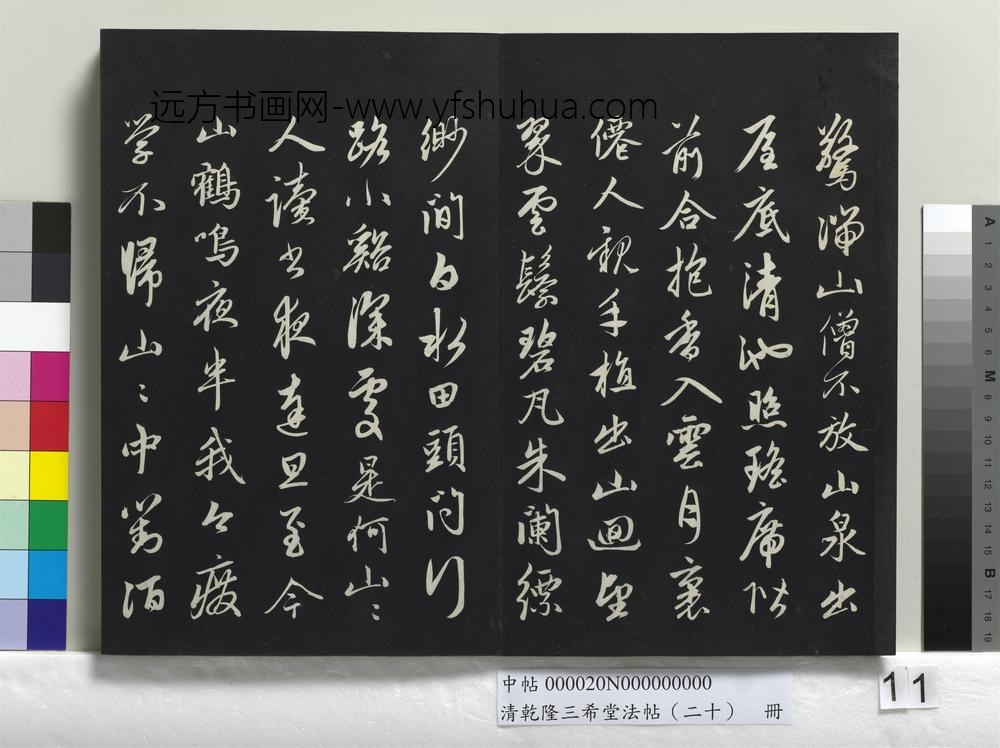 远方书画网-www.yfshuhua.com
驚湍山僧不放山泉出
屋底清池照瑤席階
前合抱香入雲月裏
僊人親手植出山迴望
翠雲鬟碧瓦朱闌縹
緲間白水田頭問行
路小谿深處是何山〻
人讀書夜達旦至今
山鶴鳴夜半我今廢
學不歸山〻中對酒
中帖 000020N000000000
清乾隆三希堂法帖（二十） 冊
11
A 1 2 3 4 5 6 M 8 9 10 11 12 13 14 15 B 17 18 19